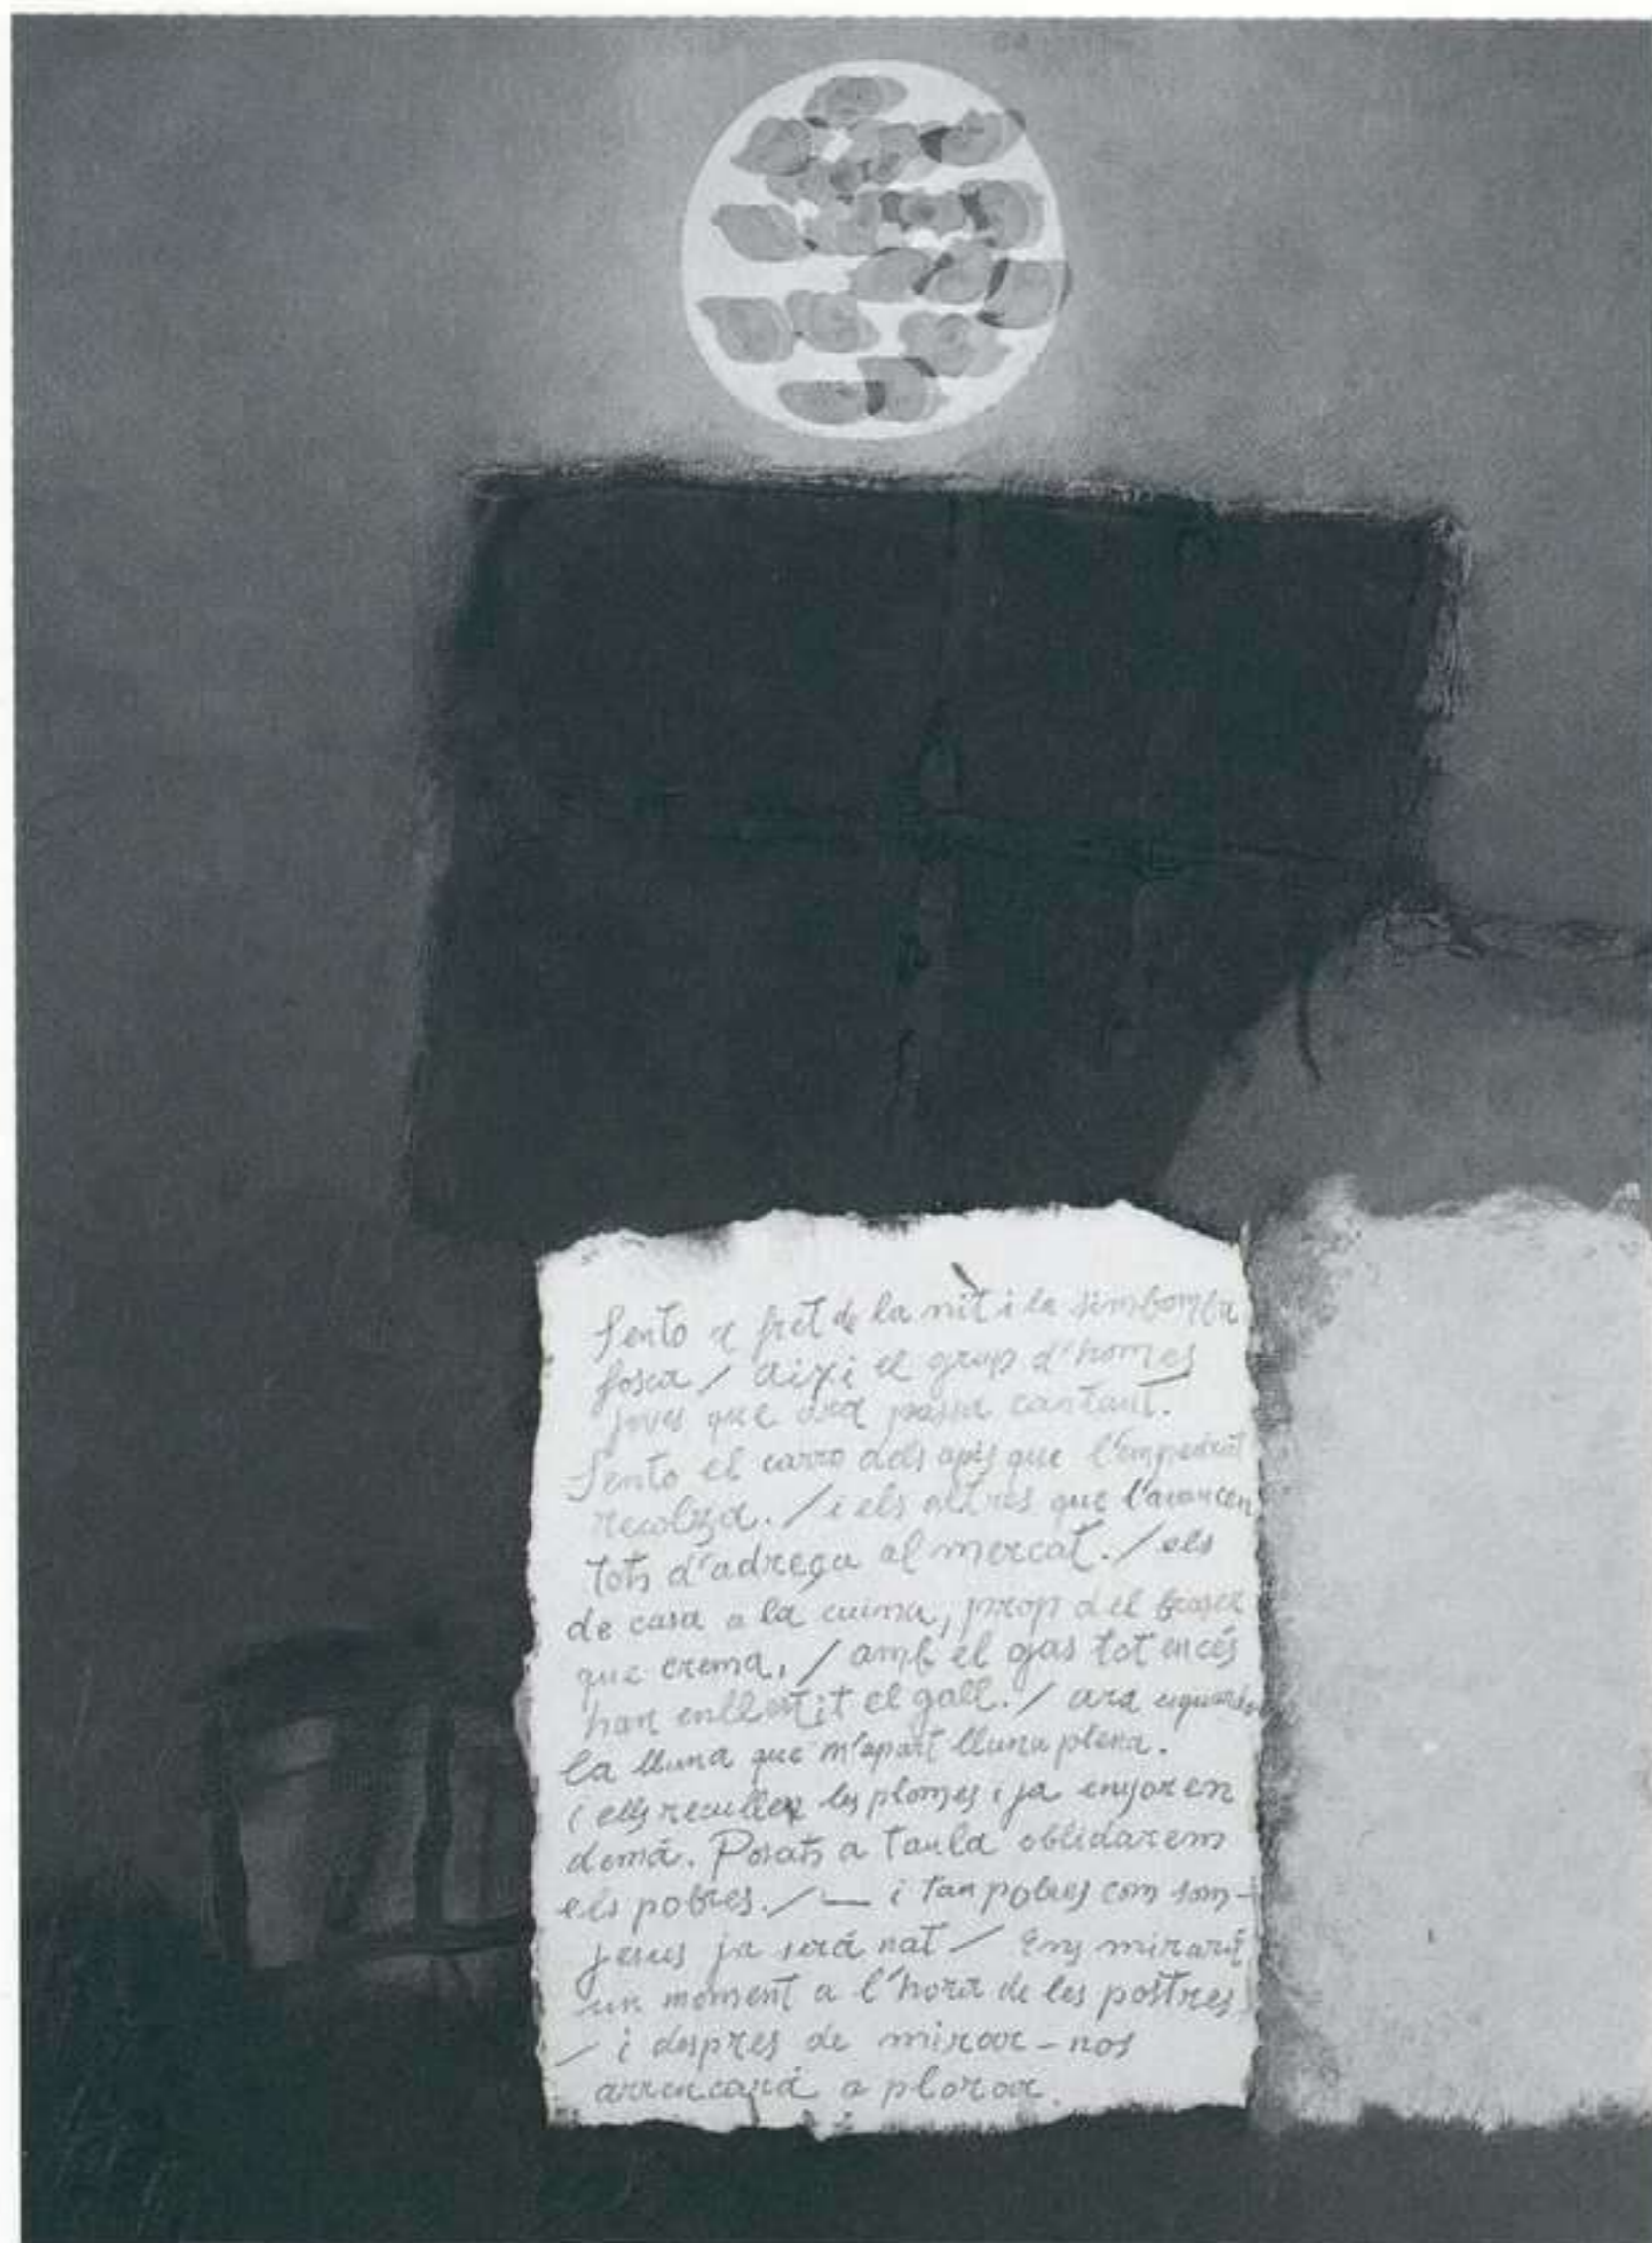 Sento e fret de la nit i la simbomba
fosca / Aixi el grup d'homes
joves que ara passa cantant.
Sento el carro dels apis que l'empedrat
recolza. / i els altres que l'avancen
tots d'adreça al mercat. / els
de casa a la cuina, prop del braser
que crema, / amb el gas tot encés
han enllestit el gall. / ara esguardo
la lluna que m'apart lluna plena.
i ells recullen les plomes i ja enyoren
demá. Posats a taula oblidarem
els pobres. / — i tan pobres com som -
Jesus ja será nat / Ens mirará
un moment a l'hora de les postres
/ i despres de mirar-nos
arrencará a plorar.